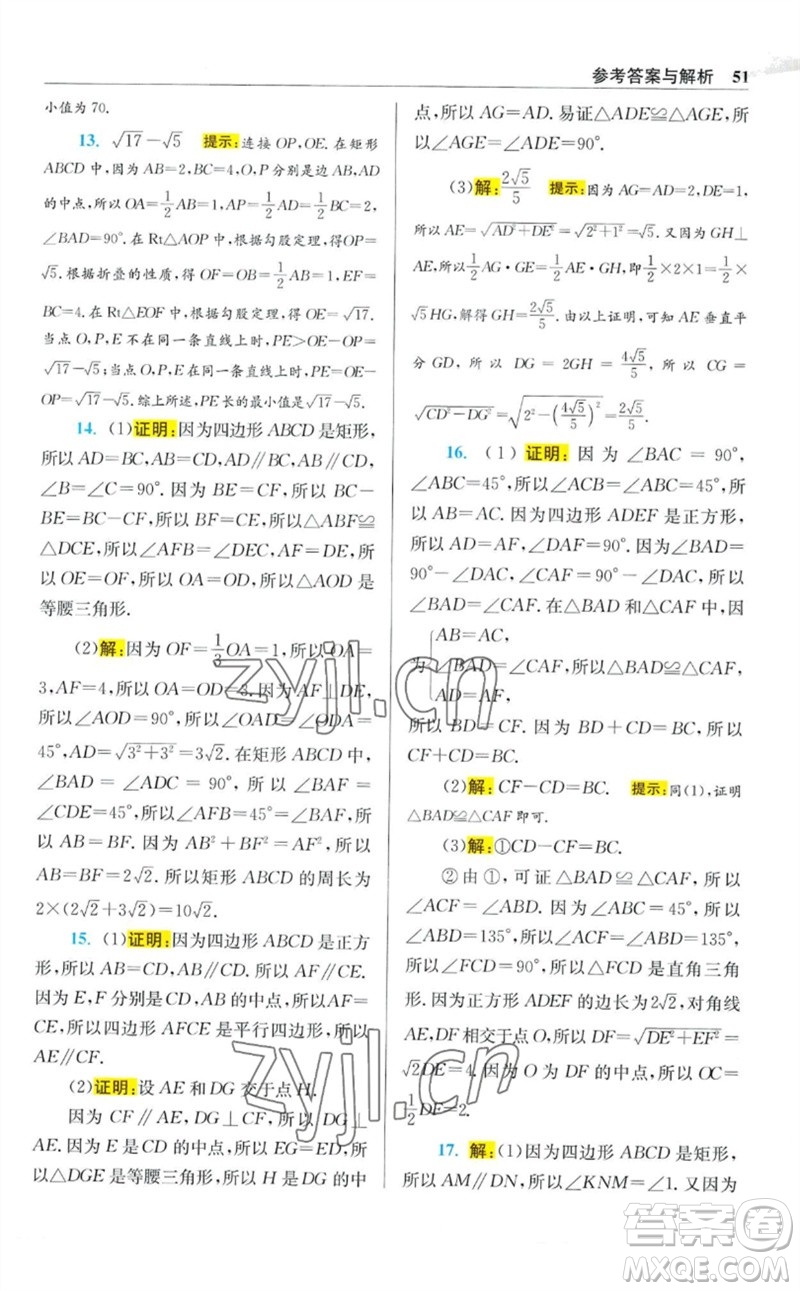 参考答案与解析 51
小值为 70.
13. √17-√5 提示:连接 OP,OE. 在矩形
ABCD 中,因为 AB=2,BC=4,O,P 分别是 BD,AD
的中点,所以 OA=1/2AB=1,AP=1/2AD=1/2BC=2,
∠BAD=90°. 在 Rt△AOP 中,根据勾股定理,得OP=√5.
根据折叠的性质,得 OF=OB=1/2AB=1,EF=
BC=4. 在 Rt△EOF 中,根据勾股定理,得 OE=√17.
当点 O,P,E 不在同一条直线上时,PE>OE-
OP=√17-√5. 综上所述,PE长的最小值是√17-√5.
14. (1)证明:因为四边形 ABCD 是矩形,
所以 AD=BC,AB=CD,AD∥BC,AB∥CD,
∠B=∠C=90°. 因为 BE=CF,所以 BC-
BE=BC-CF,所以 BF=CE,所以△ABF≌
△DCE,所以∠AFB=∠DEC,AF=DE,所
以 OE=OF,所以 OA=OD,所以△AOD 是
等腰三角形.
(2)解:因为 OF=1/3OA=1,所以 OA=
3,AF=4,所以 OA=OD=3. 因为 AF⊥DE,
所以∠AOD=90°,所以∠OAD=∠ODA=
45°,AD=√3²+3²=3√2. 在矩形 ABCD 中,
∠BAD = ∠ADC = 90°, 所以∠BAF =
∠CDE=45°,所以∠AFB=45°=∠BAF,所
以 AB=BF. 因为 AB²+BF²=AF²,所以
AB=BF=2√2. 所以矩形 ABCD 的周长为
2×(2√2+3√2)=10√2.
15. (1)证明:因为四边形 ABCD 是正方
形,所以 AB=CD,AB∥CD,所以 AF∥CE.
因为 E,F 分别是 CD,AB 的中点,所以 AF=
CE,所以四边形 AFCE 是平行四边形,所以
AE∥CF.
(2)证明:设 AE 和 DG 交于点 H.
因为 CF∥AE,DG⊥CF,所以 DG⊥
AE. 因为 E 是 CD 的中点,所以 EG=ED,所
以△DGE 是等腰三角形,所以 H 是 DG 的中
点,所以 AG=AD. 易证△ADE≌△AGE,所
以∠AGE=∠ADE=90°.
(3)解:2√5/5 提示:因为 AG=AD=2,DE=1,
所以 AE=√AD²+DE²=√2²+1²=√5. 又因为 GH⊥
AE,所以1/2AG·GE=1/2AE·GH,即1/2×2×1=1/2×
√5HG,解得 GH=2√5/5. 由以上证明,可知 AE 垂直平
分 GD, 所以 DG = 2GH = 4√5/5, 所以 CG =
√CD²-DG²=√2²-(4√5/5)²=2√5/5.
16. (1)证明:因为∠BAC = 90°,
∠ABC=45°,所以∠ACB=∠ABC=45°,所
以 AB=AC. 因为四边形 ADEF 是正方形,
所以 AD=AF,∠DAF=90°. 因为∠BAD=
90°-∠DAC,∠CAF=90°-∠DAC,所以
∠BAD=∠CAF. 在△BAD 和△CAF 中,因
AB=AC,
为 ∠BAD=∠CAF,所以△BAD≌△CAF,所
AD=AF,
以 BD=CF. 因为 BD+CD=BC,所以
CF+CD=BC.
(2)解:CF-CD=BC. 提示:同(1),证明
△BAD≌△CAF 即可.
(3)解:①CD-CF=BC.
②由①,可证△BAD≌△CAF,所以
∠ACF=∠ABD. 因为∠ABC=45°,所以
∠ABD=135°,所以∠ACF=∠ABD=135°,
所以∠FCD=90°,所以△FCD 是直角三角
形. 因为正方形 ADEF 的边长为 2√2,对角线
AE,DF 相交于点 O,所以 DF=√DE²+EF²=
√2DE=4. 因为 O 为 DF 的中点,所以 OC=
1/2DF=2.
17. 解:(1)因为四边形 ABCD 是矩形,
所以 AM∥DN,所以∠KNM=∠1. 又因为
zyjl.cn
zyjl.cn
答案卷
MXQE.COM